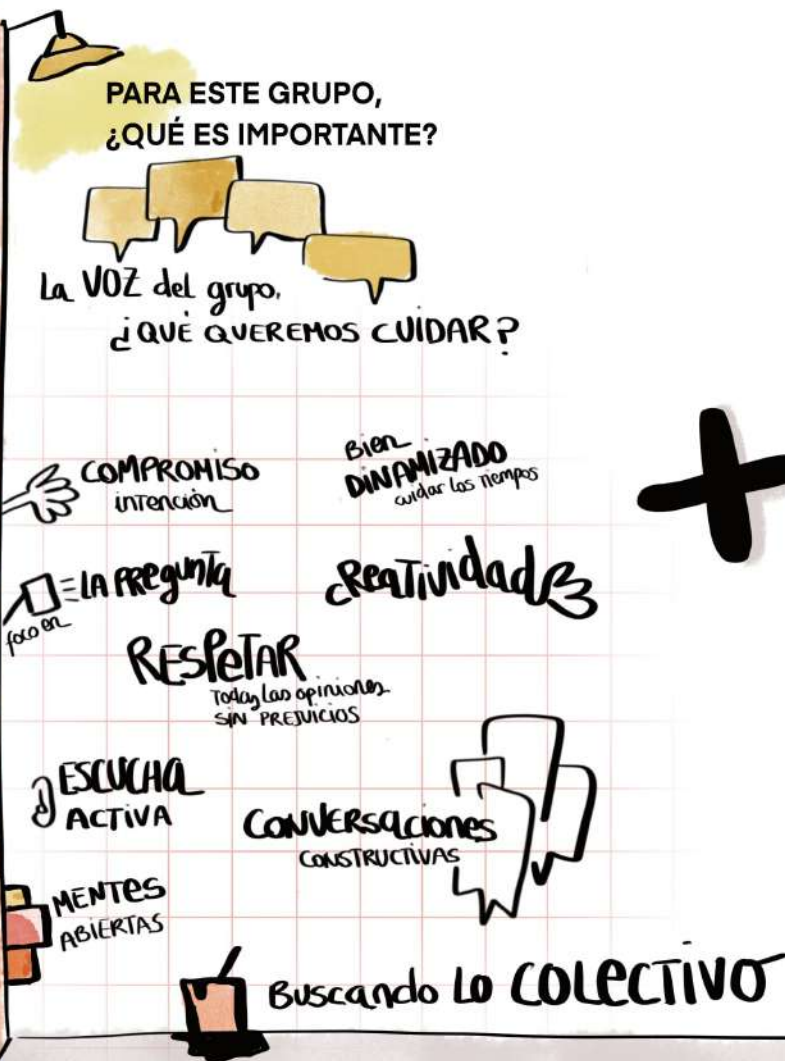 PARA ESTE GRUPO,
¿QUÉ ES IMPORTANTE?
La VOZ del grupo,
¿QUÉ QUEREMOS CUIDAR?
COMPROMISO
intención
Bien
DINAMIZADO
cuidar los tiempos
foco en
LA PREgunTa
CReaTividad
RESPeTAR
Todas las opiniones
SIN PREJUICIOS
ESCUCHa
ACTIVA
CONVERSaciones
CONSTRUCTIVAS
MENTES
ABIERTAS
Buscando Lo COLECTIVO